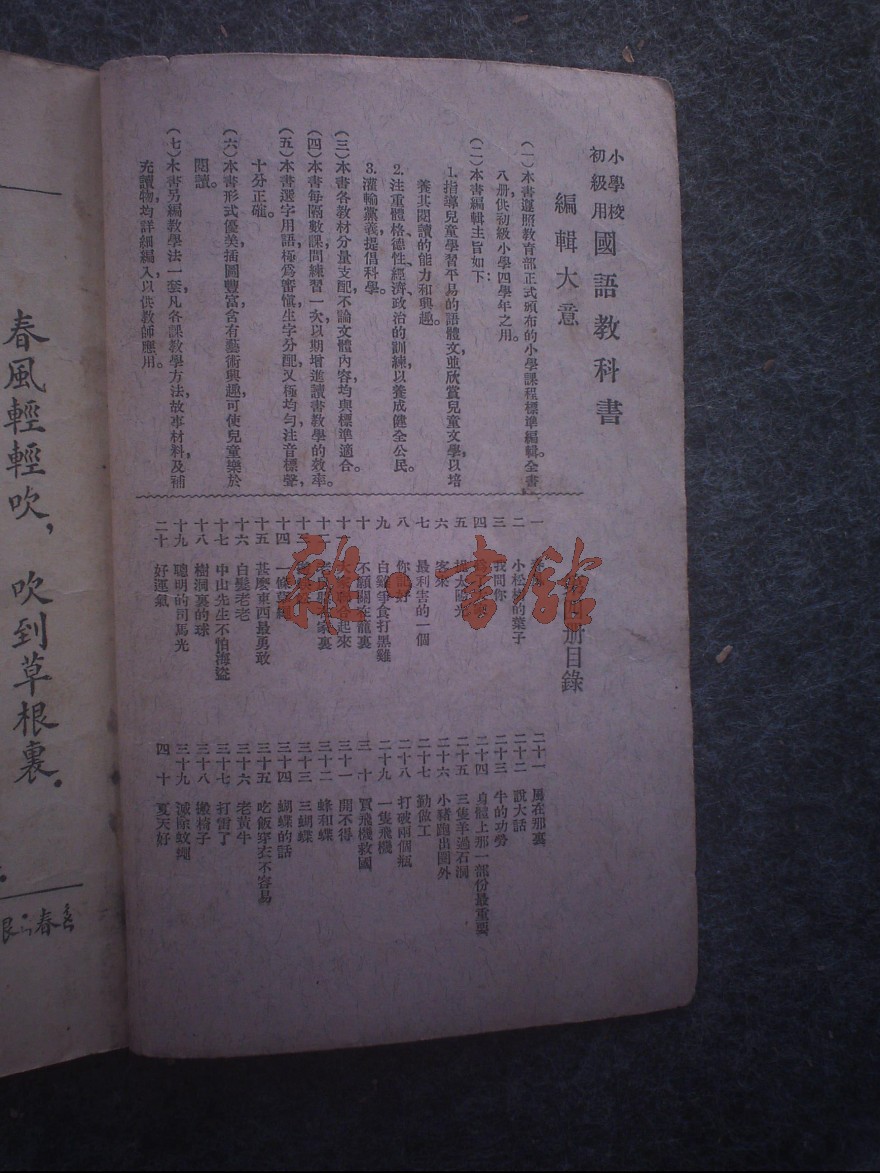 小學校
初級用
國語教科書
編輯大意
(一)本書遵照教育部正式頒布的小學課程標準編輯全書
八册,供初級小學四學年之用。
(二)本書編輯主旨如下:
1.指導兒童學習平易的語體文並欣賞兒童文學以培
養其閱讀的能力和興趣。
2.注重體格、德性、經濟、政治的訓練以養成健全公民。
3.灌輸黨義,提倡科學。
(三)本書各教材分量支配不論文體內容均與標準適合。
(四)本書每隔數課間練習一次,以期增進讀書教學的效率。
(五)本書選字用語,極爲審慎,生字分配又極均勻注音標聲,
十分正確。
(六)本書形式優美,插圖豐富含有藝術興趣,可使兒童樂於
閱讀。
(七)本書另編教學法一套,凡各課教學方法,故事材料,及補
充讀物,均詳細編入,以供教師應用。
册目錄
一
二 小松樹的葉子
三 我問你
四
五 太陽光
六 客來
七 最利害的一個
八 你
九 白雞爭食打黑雞
十 不願關在籠裏
十一 起來
十二 家裏
十三
十四 一條
十五 甚麼東西最勇敢
十六 白髮老老
十七 中山先生不怕海盜
十八 樹洞裏的球
十九 聰明的司馬光
二十 好運氣
二十一 風在那裏
二十二 說大話
二十三 牛的功勞
二十四 身體上那一部份最重要
二十五 三隻羊過石澗
二十六 小豬跑出園外
二十七 勤做工
二十八 打破兩個瓶
二十九 一隻飛機
三十 買飛機救國
三十一 開不得
三十二 蜂和蝶
三十三 三蝴蝶
三十四 蝴蝶的話
三十五 吃飯穿衣不容易
三十六 老黃牛
三十七 打雷了
三十八 搬椅子
三十九 滅除蚊蠅
四十 夏天好
雜·書館
春風輕輕吹,吹到草根裏。
春
根